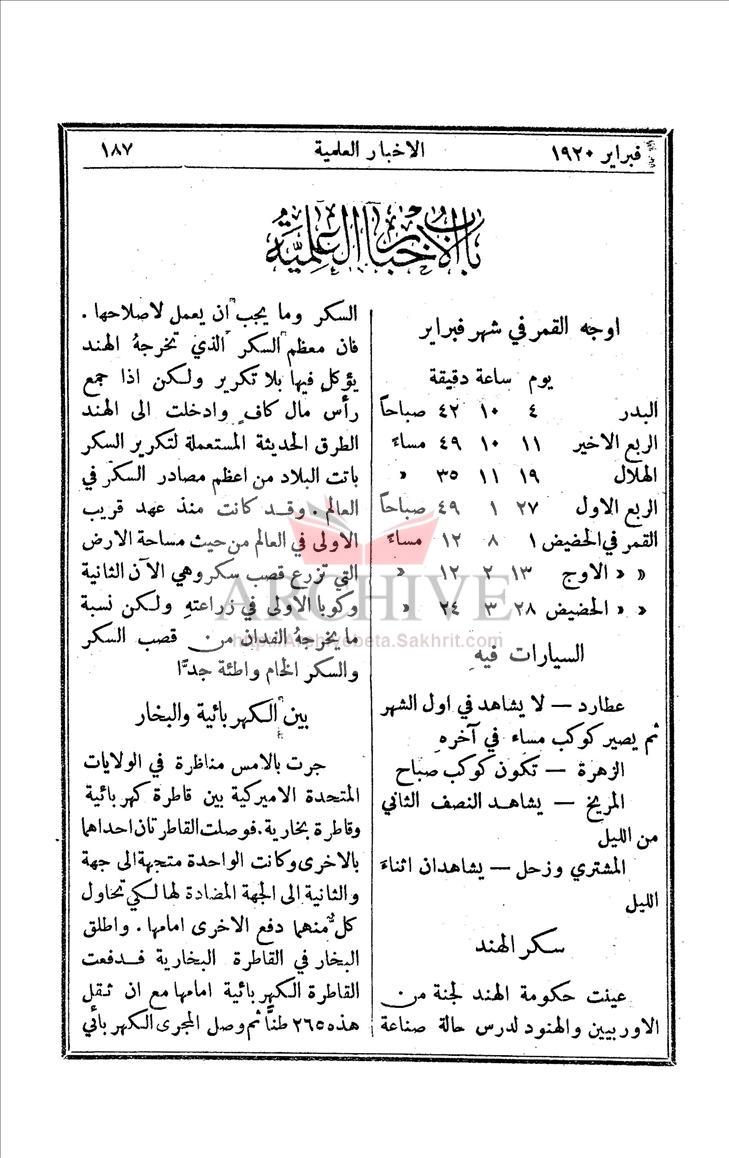 فبراير ١٩٢٠
الاخبار العلمية
١٨٧
باب الاخبار العلمية
اوجه القمر في شهر فبراير
يوم ساعة دقيقة
البدر ٤ ١٠ ٤٢ صباحاً
الربع الاخير ١١ ١٠ ٤٩ مساءً
الهلال ١٩ ١١ ٣٥ »
الربع الاول ٢٧ ١ ٤٩ صباحاً
القمر في الحضيض ١ ٨ ١٢ مساءً
» » الاوج ١٣ ٢ ١٢ »
» » الحضيض ٢٨ ٣ ٢٤ »
السيارات فيهِ
عطارد — لا يشاهد في اول الشهر
ثم يصير كوكب مساء في آخرهِ
الزهرة — تكون كوكب صباح
المريخ — يشاهد النصف الثاني
من الليل
المشتري وزحل — يشاهدان اثناء
الليل
سكر الهند
عينت حكومة الهند لجنة من
الاوربيين والهنود لدرس حالة صناعة
السكر وما يجب ان يعمل لاصلاحها .
فان معظم السكر الذي تخرجهُ الهند
يؤكل فيها بلا تكرير ولكن اذا جمع
رأس مال كافٍ وادخلت الى الهند
الطرق الحديثة المستعملة لتكرير السكر
باتت البلاد من اعظم مصادر السكر في
العالم . وقد كانت منذ عهد قريب
الاولى في العالم من حيث مساحة الارض
التي تزرع قصب سكر وهي الآن الثانية
وكوبا الاولى في زراعتهِ ولكن نسبة
ما يخرجهُ الفدان من قصب السكر
والسكر الخام واطئة جدًّا
بين الكهربائية والبخار
جرت بالامس مناظرة في الولايات
المتحدة الاميركية بين قاطرة كهربائية
وقاطرة بخارية . فوصلت القاطرتان احداهما
بالاخرى وكانت الواحدة متجهة الى جهة
والثانية الى الجهة المضادة لها لكي تحاول
كلٌّ منهما دفع الاخرى امامها . واطلق
البخار في القاطرة البخارية فدفعت
القاطرة الكهربائية امامها مع ان ثقل
هذه ٢٦٥ طنًّا ثم وصل المجرى الكهربائي
ARCHIVE
http://Archivebeta.Sakhrit.com